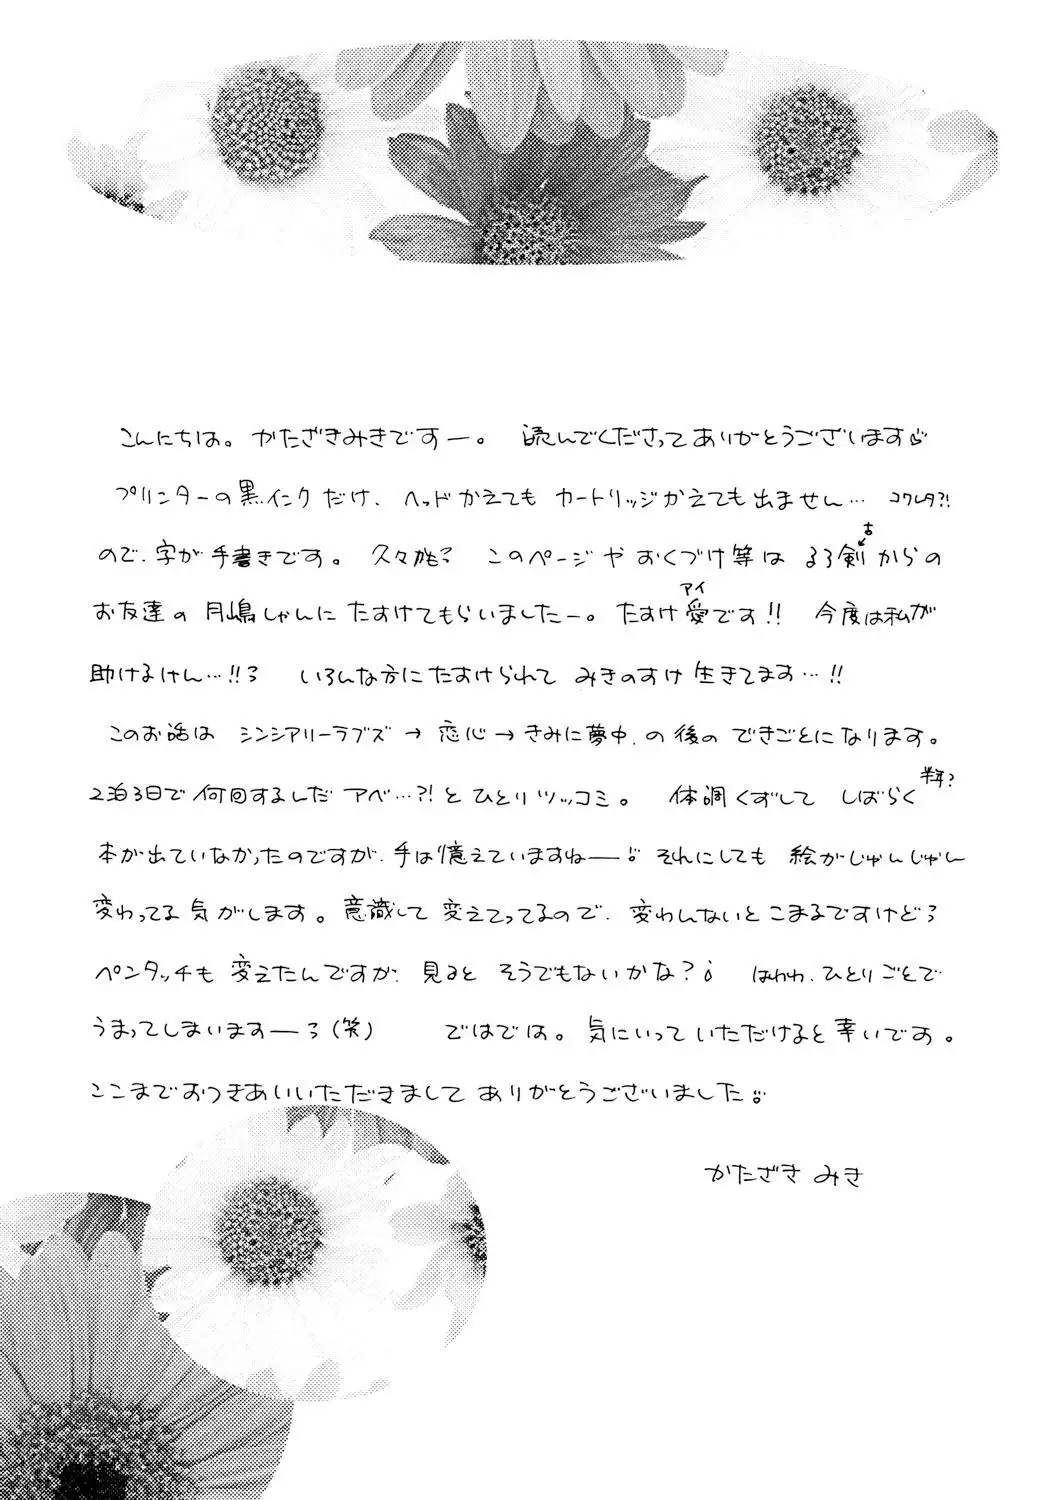 こんにちは。かたざきみきですー。 読んでくださってありがとうございます
プリンターの黒インクだけ、ヘッドかえても カートリッジかえても出ません… コワレタ?!
ので、字が手書きです。 久々かも? このページや おくづけ等は るろ剣からの
古
お友達の 月嶋しゃんに たすけてもらいましたー。 たすけ愛です!! 今度は私が
アイ
助けるけん…!!? いろんな方にたすけられて みきのすけ 生きてます…!!
このお話は シンシアリーラブズ → 恋心 → きみに夢中、の後の できごとになります。
2泊3日で 何回するんだ アベ…?! と ひとりツッコミ。 体調くずして しばらく
半年?
本が出ていなかったのですが、手は憶えていますねー それにしても 絵がじゃんじゃん
変わってる 気がします。意識して 変えてってるので、変わんないと こまるですけど
ペンタッチも 変えたんですが、見ると そうでもないかな? はわわ、ひとりごとで
うまってしまいますー (笑) ではでは。 気にいって いただけると 幸いです。
ここまでおつきあいいただきまして ありがとうございました
かたざき みき